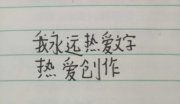 我永远热爱文字
热爱创作